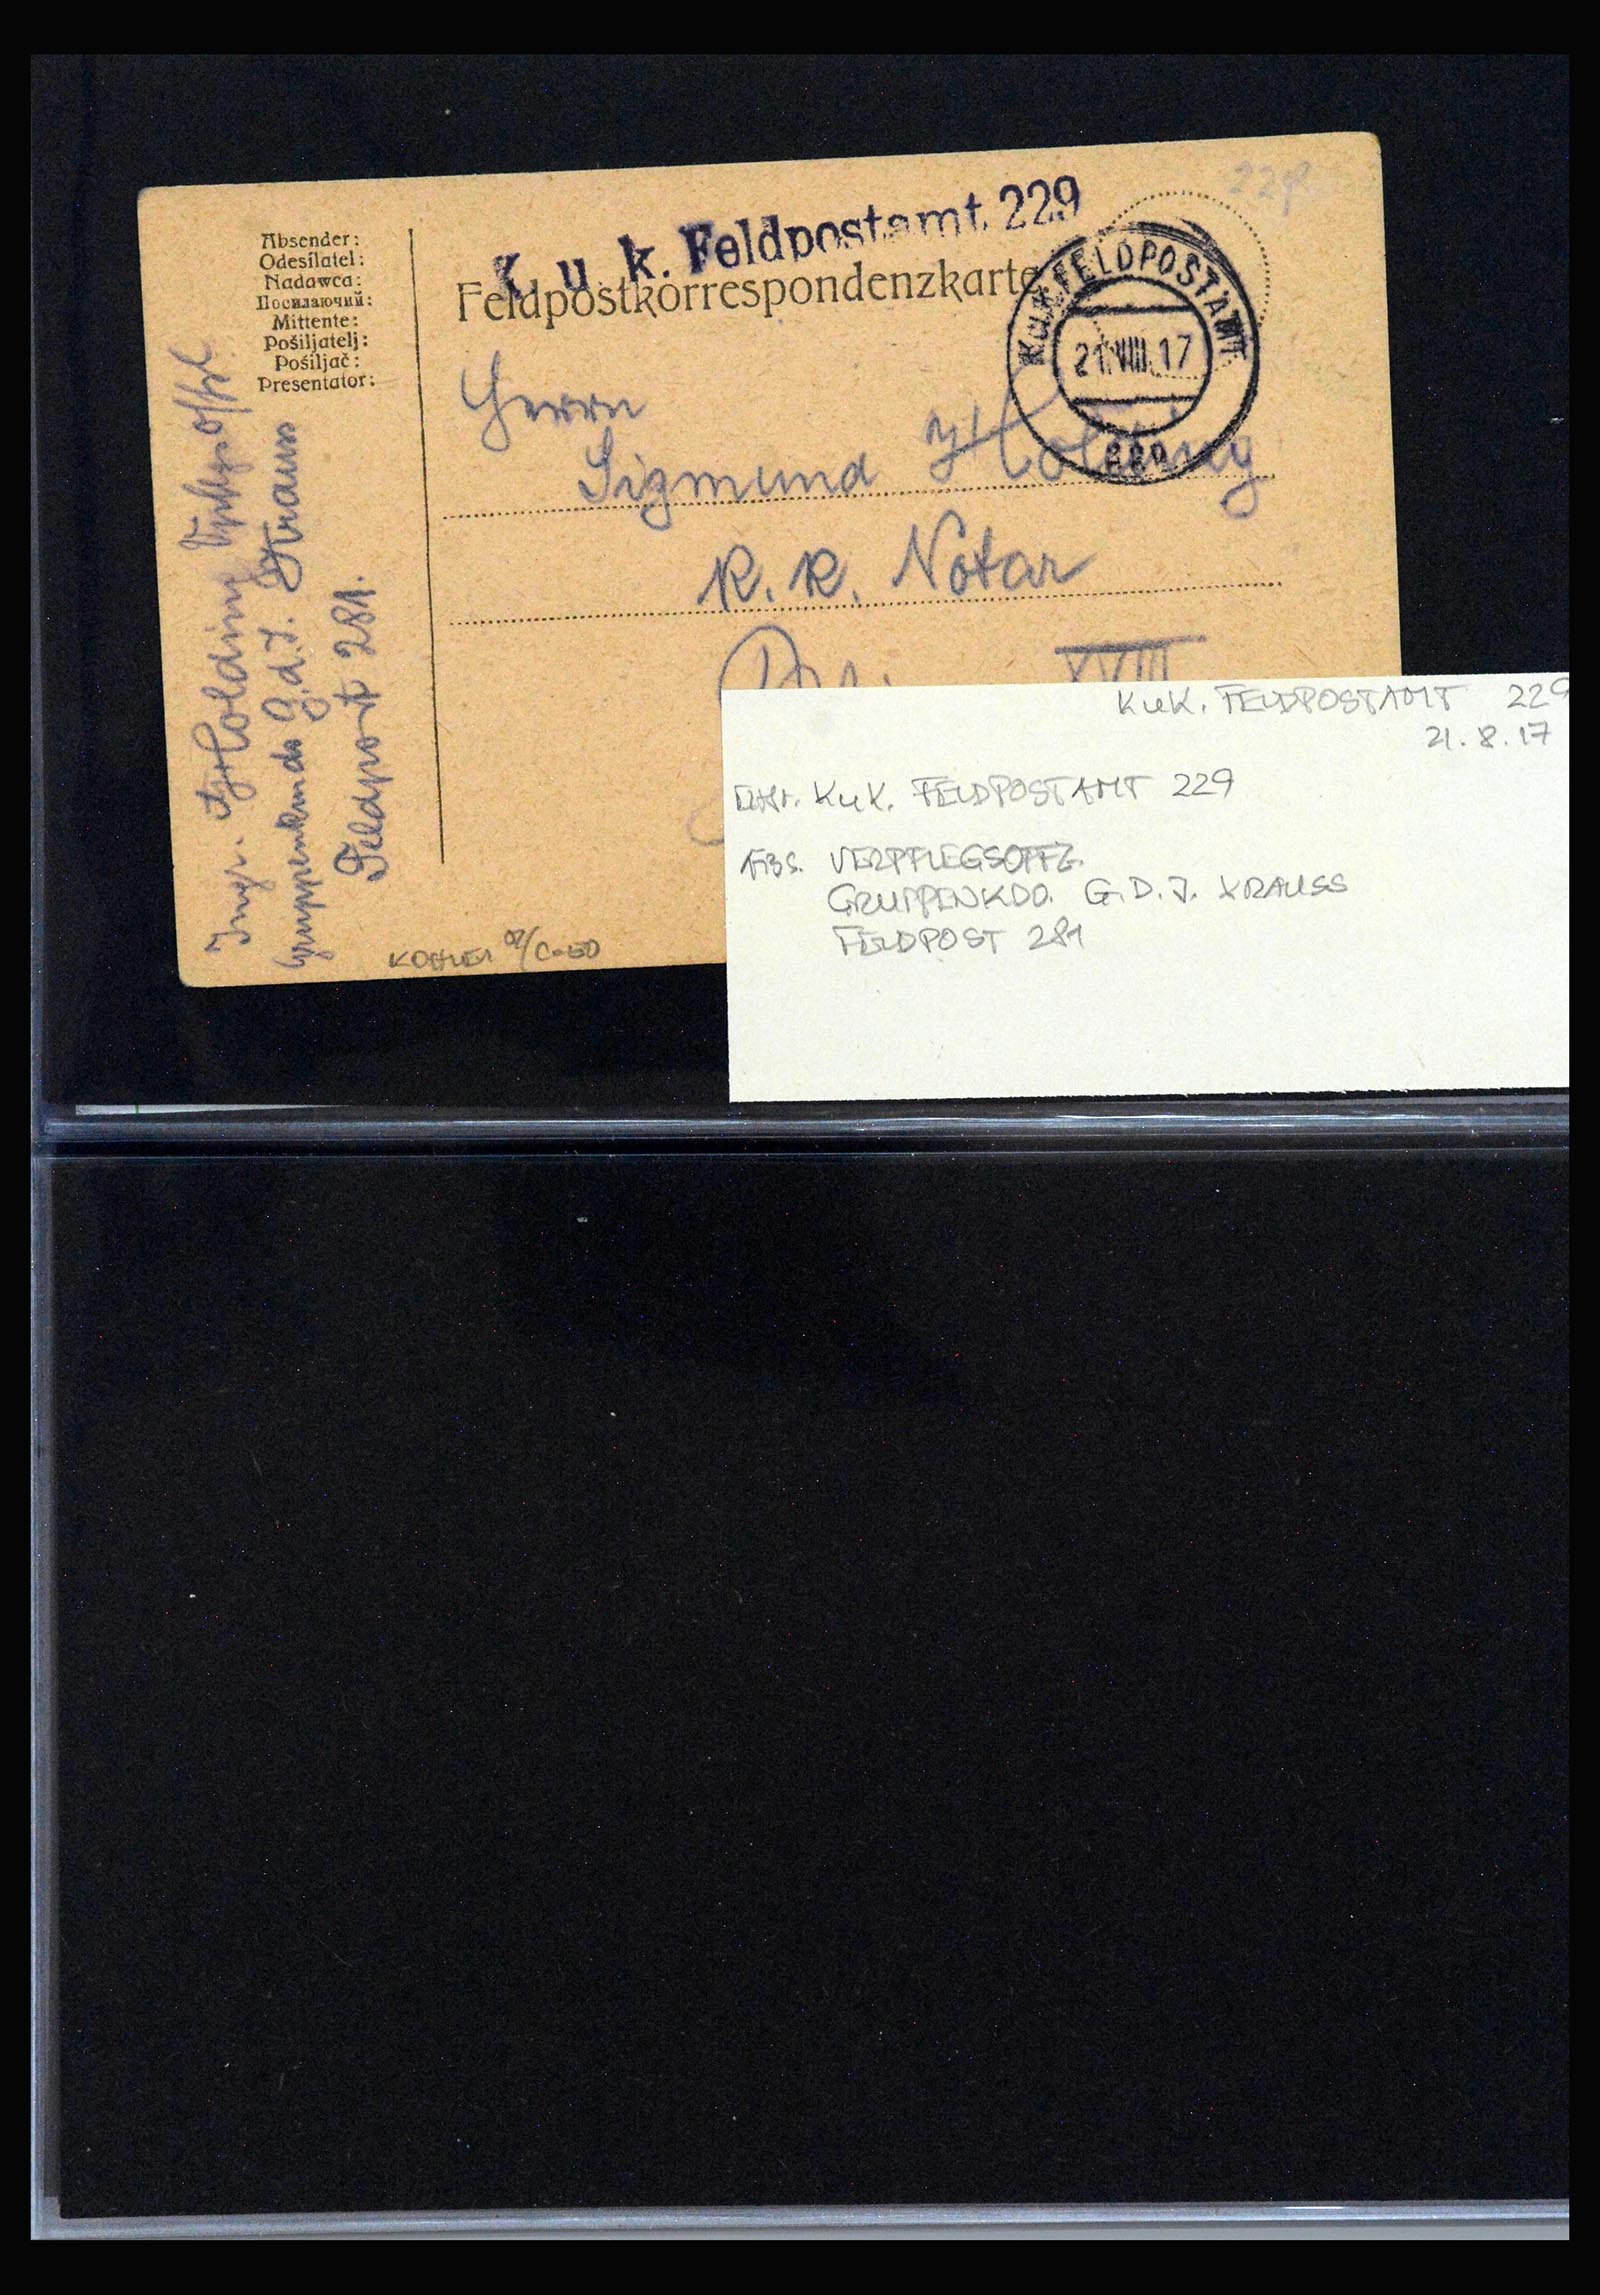 Absender:
Odesílatel:
Nadawca:
Посилаючий:
Mittente:
Pošiljatelj:
Pošiljač:
Presentator:
K. u. k. Feldpostamt 229
Feldpostkorrespondenzkarte
K.u.K. FELDPOSTAMT
21.VIII.17
229
Herrn
Sigmund Holding
K. K. Notar
XVIII
Holding
Gruppenkmdo G.d.I. Krauss
Feldpost 281.
KuK. FELDPOSTAMT 229
21.8.17
KuK. FELDPOSTAMT 229
ABS. VERPFLEGSOFFZ.
GRUPPENKDO. G.D.J. KRAUSS
FELDPOST 281